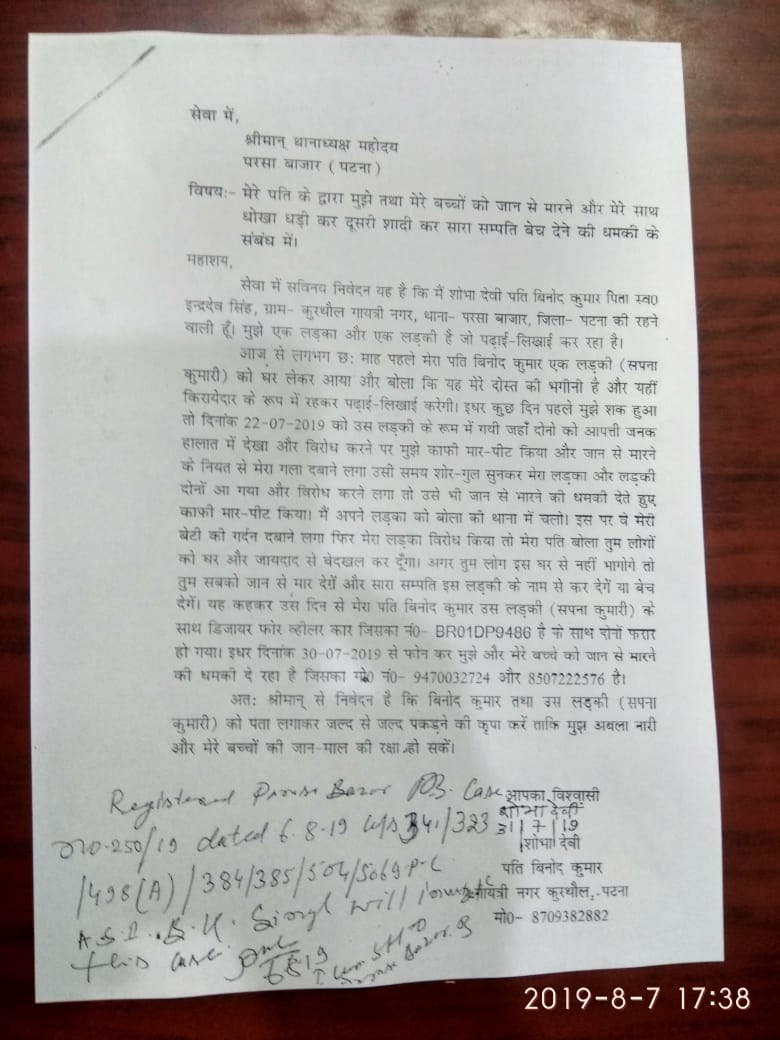 सेवा में,
श्रीमान् थानाध्यक्ष महोदय
परसा बाजार ( पटना )
विषयः- मेरे पति के द्वारा मुझे तथा मेरे बच्चों को जान से मारने और मेरे साथ
धोखा धड़ी कर दूसरी शादी कर सारा सम्पति बेच देने की धमकी के
संबंध में।
महाशय,
सेवा में सविनय निवेदन यह है कि मैं शोभा देवी पति बिनोद कुमार पिता स्व0
इन्द्रदेव सिंह, ग्राम- कुरथौल गायत्री नगर, थाना- परसा बाजार, जिला- पटना की रहने
वाली हूँ। मुझे एक लड़का और एक लड़की है जो पढ़ाई-लिखाई कर रहा है।
आज से लगभग छः माह पहले मेरा पति बिनोद कुमार एक लड़की (सपना
कुमारी) को घर लेकर आया और बोला कि यह मेरे दोस्त की भगीनी है और यहीं
किरायेदार के रूप में रहकर पढ़ाई-लिखाई करेगी। इधर कुछ दिन पहले मुझे शक हुआ
तो दिनांक 22-07-2019 को उस लड़की के रूम में गयी जहाँ दोनो को आपत्ती जनक
हालात में देखा और विरोध करने पर मुझे काफी मार-पीट किया और जान से मारने
के नियत से मेरा गला दबाने लगा उसी समय शोर-गुल सुनकर मेरा लड़का और लड़की
दोनों आ गया और विरोध करने लगा तो उसे भी जान से भारने की धमकी देते हुए
काफी मार-पीट किया। मैं अपने लड़का को बोला की थाना में चलो। इस पर वे मेरी
बेटी की गर्दन दबाने लगा फिर मेरा लड़का विरोध किया तो मेरा पति बोला तुम लोगों
को घर और जायदाद से बेदखल कर दूँगा। अगर तुम लोग इस घर से नहीं भागोगे तो
तुम सबको जान से मार देगें और सारा सम्पति इस लड़की के नाम से कर देगें या बेच
देगें। यह कहकर उस दिन से मेरा पति बिनोद कुमार उस लड़की (सपना कुमारी) के
साथ डिजायर फोर व्हीलर कार जिसका नं0- BR01DP9486 है के साथ दोनों फरार
हो गया। इधर दिनांक 30-07-2019 से फोन कर मुझे और मेरे बच्चे को जान से मारने
की धमकी दे रहा है जिसका मो0 नं0- 9470032724 और 8507222576 है।
अतः श्रीमान् से निवेदन है कि बिनोद कुमार तथा उस लड़की (सपना
कुमारी) को पता लगाकर जल्द से जल्द पकड़ने की कृपा करें ताकि मुझ अबला नारी
और मेरे बच्चों की जान-माल की रक्षा हो सकें।
आपका विश्वासी
शोभा देवी
31/7/19
शोभा देवी
पति बिनोद कुमार
गायत्री नगर कुरथौल,-पटना
मो0- 8709382882
Registered Bazar P.S. Case
no-250/19 dated 6.8.19 u/s 341/323
/498(A)/384/385/504/506
A.S.I. Singh will
this case
2019-8-7 17:38